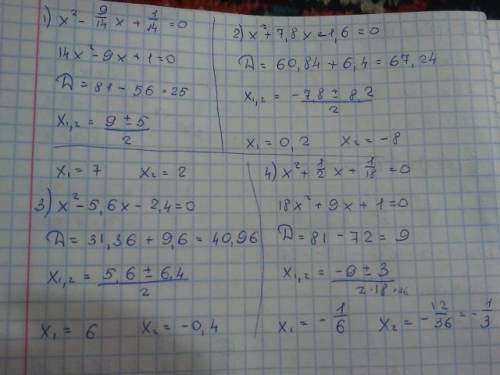 1) x² - 9/14 x + 1/14 = 0
14x² - 9x + 1 = 0
D = 81 - 56 = 25
x₁,₂ = (9 ± 5)/2
x₁ = 7 x₂ = 2
2) x² + 7,8x - 1,6 = 0
D = 60,84 + 6,4 = 67,24
x₁,₂ = (-7,8 ± 8,2)/2
x₁ = 0,2 x₂ = -8
3) x² - 5,6x - 2,4 = 0
D = 31,36 + 9,6 = 40,96
x₁,₂ = (5,6 ± 6,4)/2
x₁ = 6 x₂ = -0,4
4) x² + 1/2 x + 1/18 = 0
18x² + 9x + 1 = 0
D = 81 - 72 = 9
x₁,₂ = (-9 ± 3)/(2·18)
x₁ = -1/6 x₂ = -12/36 = -1/3